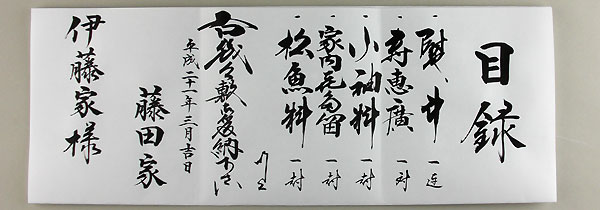 目録
一、熨斗 一連
一、寿恵廣 一対
一、小袖料 一封
一、家内喜多留 一封
一、松魚料 一封
以上
右幾久敷御受納下さい
平成二十一年三月吉日
藤田家
伊藤家様